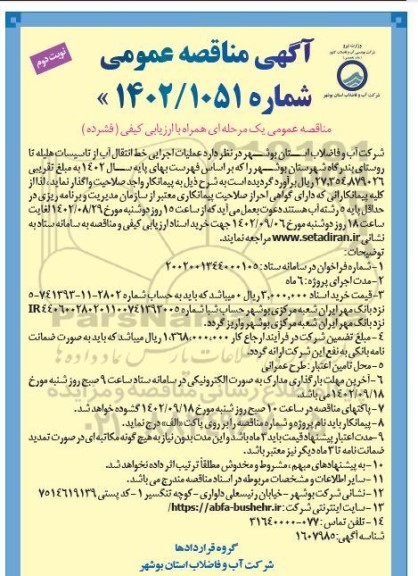 وزارت نیرو
شرکت مهندسی آب و فاضلاب کشور
شرکت آب و فاضلاب استان بوشهر
نوبت دوم
آگهی مناقصه عمومی
شماره ۱۴۰۲/۱۰۵۱ »
مناقصه عمومی یک مرحله ای همراه با ارزیابی کیفی ( فشرده )
شرکت آب و فاضلاب استان بوشهر در نظر دارد عملیات اجرایی خط انتقال آب از تاسیسات هلیله تا
روستای بندرگاه شهرستان بوشهر را که بر اساس فهرست بهای پایه سال ۱۴۰۲ به مبلغ تقریبی
۲۷,۳۵۴,۸۷۹,۰۲۶ ریال برآورد گردیده است به شرح ذیل به پیمانکار واجد صلاحیت واگذار نماید، لذا از
کلیه پیمانکارانی که دارای گواهی احراز صلاحیت پیمانکاری معتبر از سازمان مدیریت و برنامه ریزی در
حداقل پایه ۵ رشته آب هستند دعوت بعمل می آید که از ساعت ۱۵ روز دوشنبه مورخ ۱۴۰۲/۰۸/۲۹ لغایت
ساعت ۱۸ روز دوشنبه مورخ ۱۴۰۲/۰۹/۰۶ جهت خرید اسناد ارزیابی کیفی و مناقصه به سامانه ستاد به
نشانی www.setadiran.ir مراجعه نمایند.
توضیحات:
۱- شماره فراخوان در سامانه ستاد : ۲۰۰۲۰۰۱۳۴۴۰۰۰۱۰۵
۲- مدت اجرای پروژه : ۶ ماه
۳- قیمت خرید اسناد ۳,۰۰۰,۰۰۰ ریال میباشد که باید به حساب شماره ۲۸۰۲-۱۱-۷۴۱۳۹۳-۵
نزد بانک مهر ایران شعبه مرکزی بوشهر حساب شبا شماره
نزد بانک مهر ایران شعبه مرکزی بوشهر واریز گردد.
۴- مبلغ تضمین شرکت در فرآیند ارجاع کار ۱,۳۶۸,۰۰۰,۰۰۰ ریال میباشد که باید به صورت ضمانت
نامه بانکی به نفع این شرکت ارائه گردد.
۵- محل تامین اعتبار : طرح عمرانی
۶- آخرین مهلت بارگذاری مدارک به صورت الکترونیکی در سامانه ستاد ساعت ۹ صبح روز شنبه مورخ
۱۴۰۲/۰۹/۱۸ می باشد.
۷- پاکتهای مناقصه در ساعت ۱۰ صبح روز شنبه مورخ ۱۴۰۲/۰۹/۱۸ گشوده خواهد شد.
۸- پیمانکار باید نام پروژه و شماره مناقصه را بر روی پاکت «الف» درج نماید.
۹- مدت اعتبار پیشنهاد قیمت باید ۳ ماه باشد و این مدت بدون نیاز به هیچ گونه مکاتبه ای در صورت تمدید
ضمانت نامه تا ۳ ماه دیگر نیز معتبر باشد.
۱۰- به پیشنهادهای مبهم ، مشروط و مخدوش مطلقاً ترتیب اثر داده نخواهد شد.
۱۱- سایر اطلاعات و مشخصات مربوطه در اسناد مناقصه مندرج می باشد.
۱۲- نشانی شرکت بوشهر - خیابان رئیسعلی دلواری - کوچه تنگسیر ۱- کد پستی ۷۵۱۴۶۱۹۱۳۹
۱۳- سایت اینترنتی شرکت : https://abfa-bushehr.ir/
۱۴- تلفن تماس : ۰۷۷-۳۱۶۴۰۰۰۰
شناسه آگهی: ۱۶۰۷۹۸۵
گروه قراردادها
شرکت آب و فاضلاب استان بوشهر